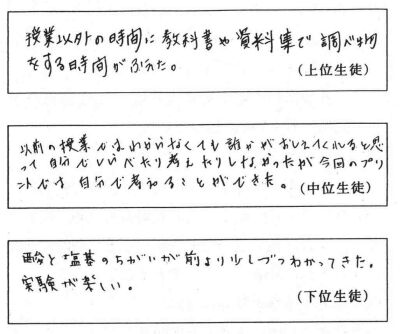 授業以外の時間に教科書や資料集で調べ物
をする時間がふえた。
(上位生徒)
以前の授業ではわからなくても誰かがおしえてくれると思
って自分でしらべたり考えたりしなかったが今回のプリ
ントでは自分で考えることができた。
(中位生徒)
酸と塩基のちがいが前より少しづつわかってきた。
実験が楽しい。
(下位生徒)